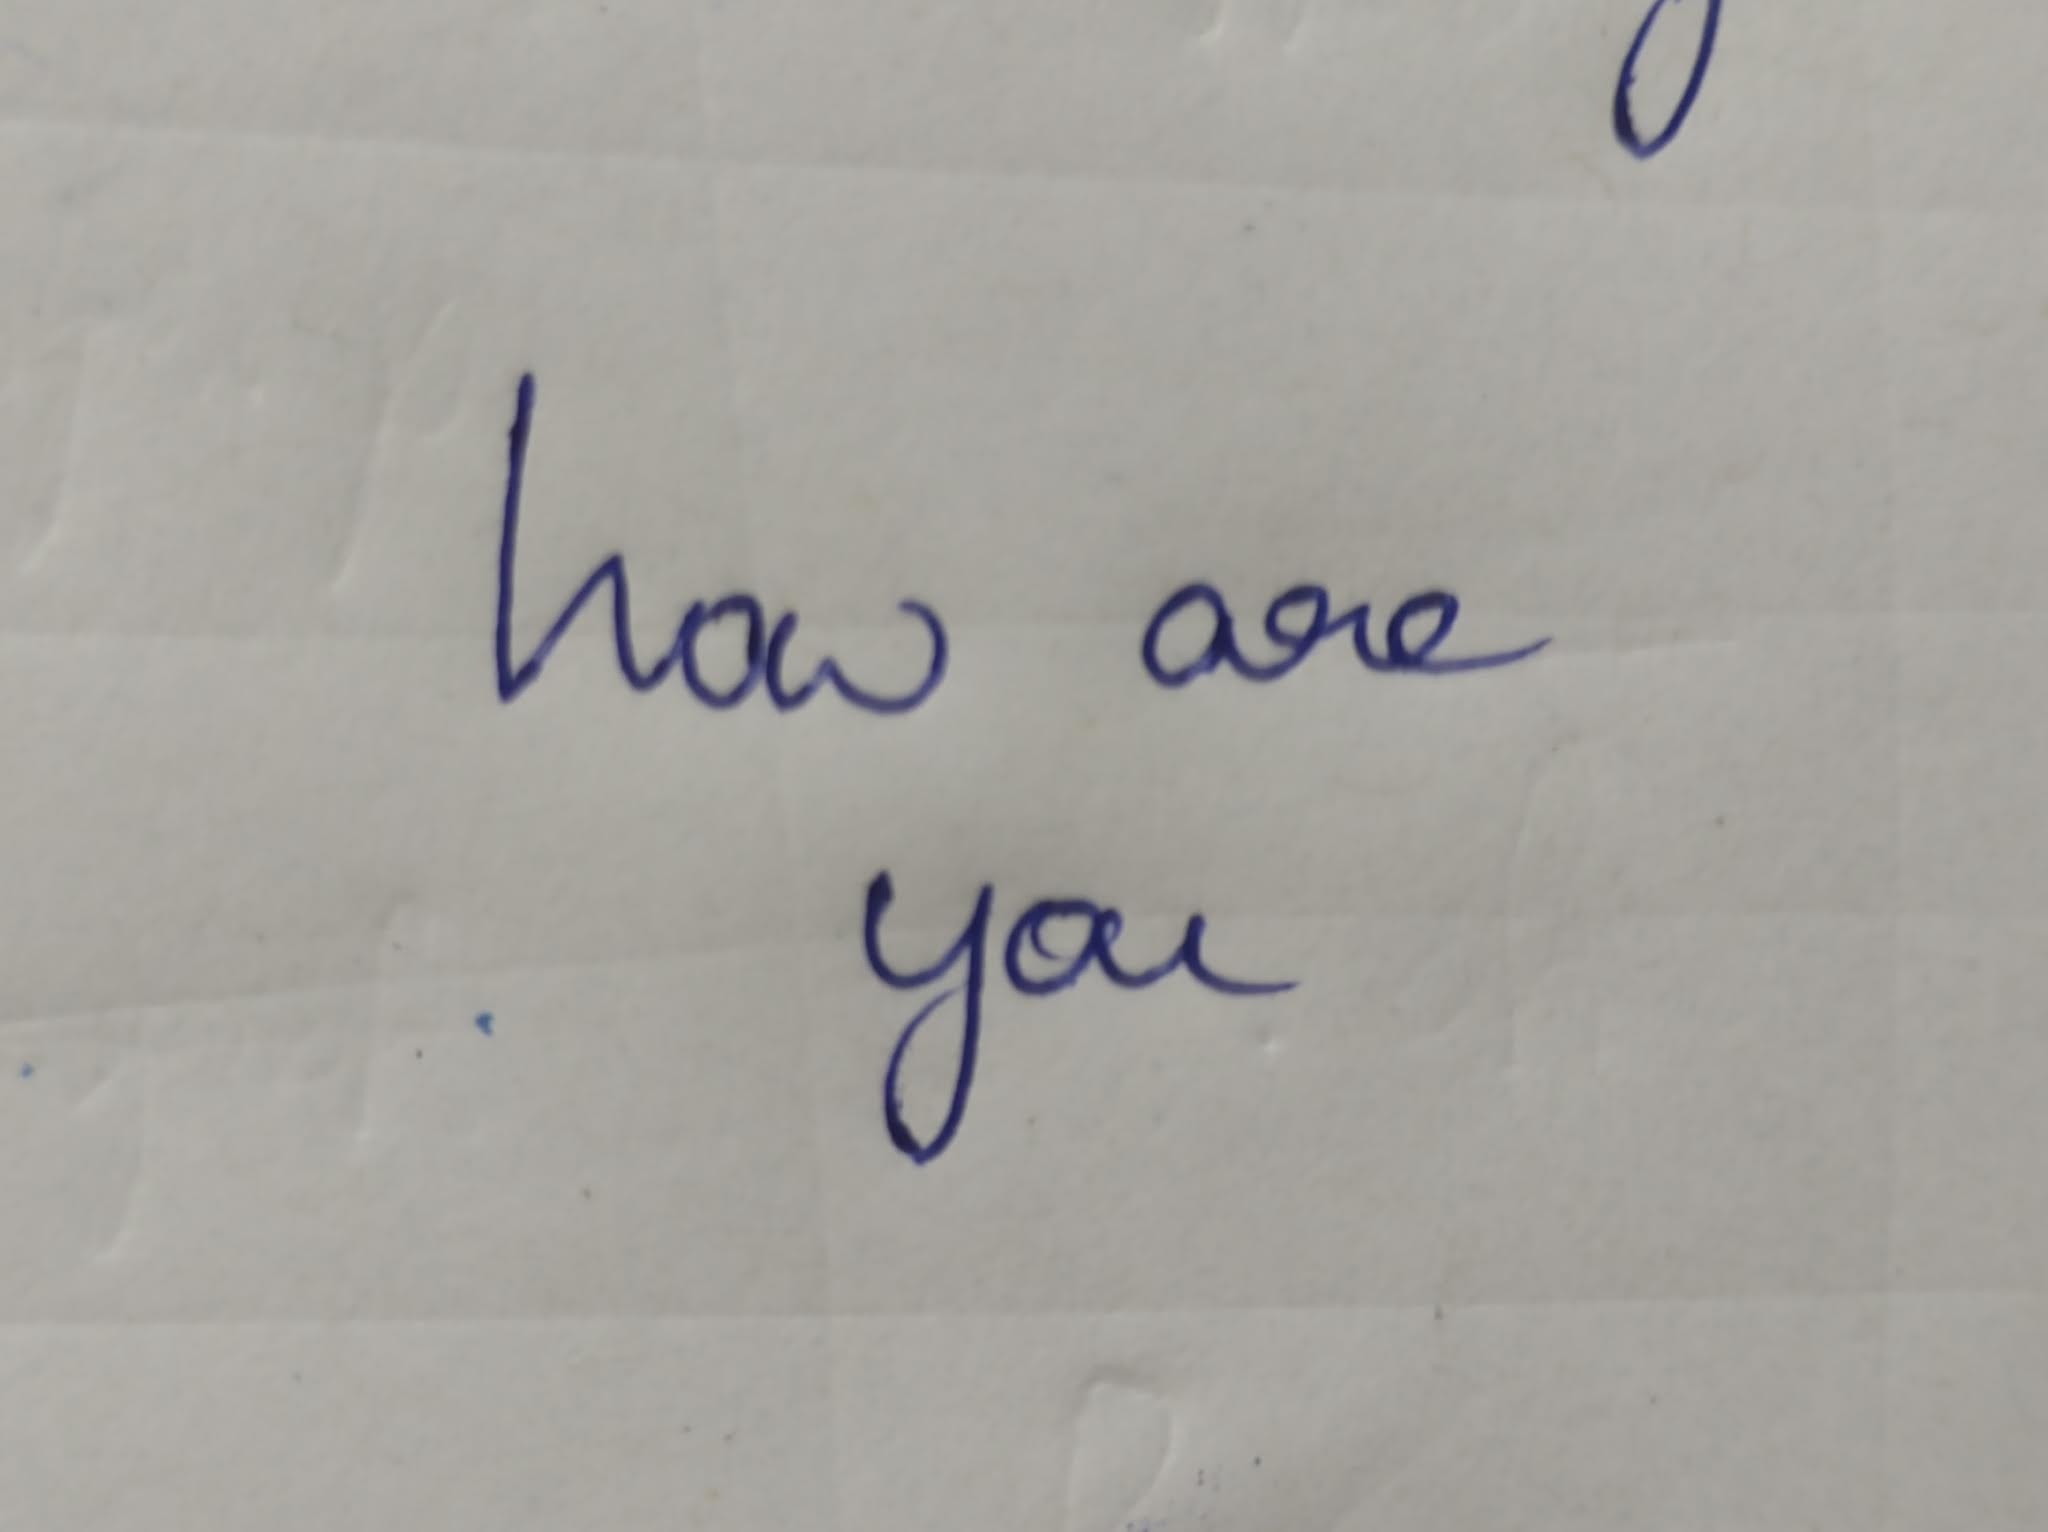 how are
you